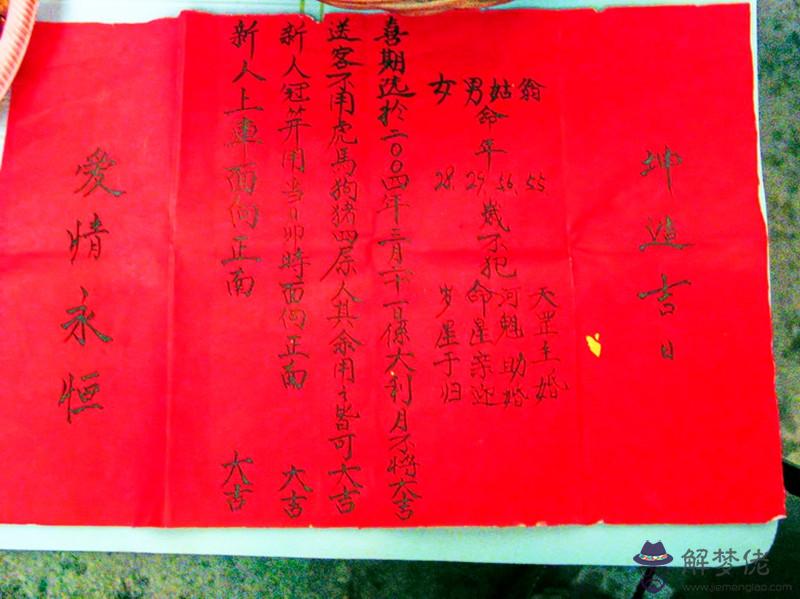 坤造吉日
翁 55 天罡主婚
姑 56 河魁助婚
命年 歲不犯
男 29 命星亲迎
女 28 岁星于归
喜期选於二〇〇四年三月二十一日係大利月不將大吉
送客不用虎馬狗猪四属人其余用之皆可大吉
新人冠笄用当日卯時面向正南 大吉
新人上車面向正南 大吉
愛情永恒
解梦佬
www.jiemenglao.com